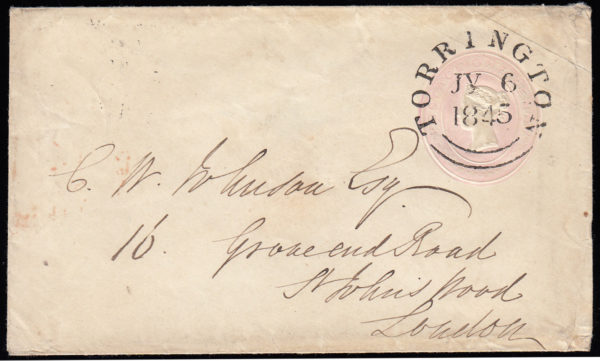 TORRINGTON
JY 6
1845
C. W. Johnson Esq.
16 Grove end Road
St Johns Wood
London